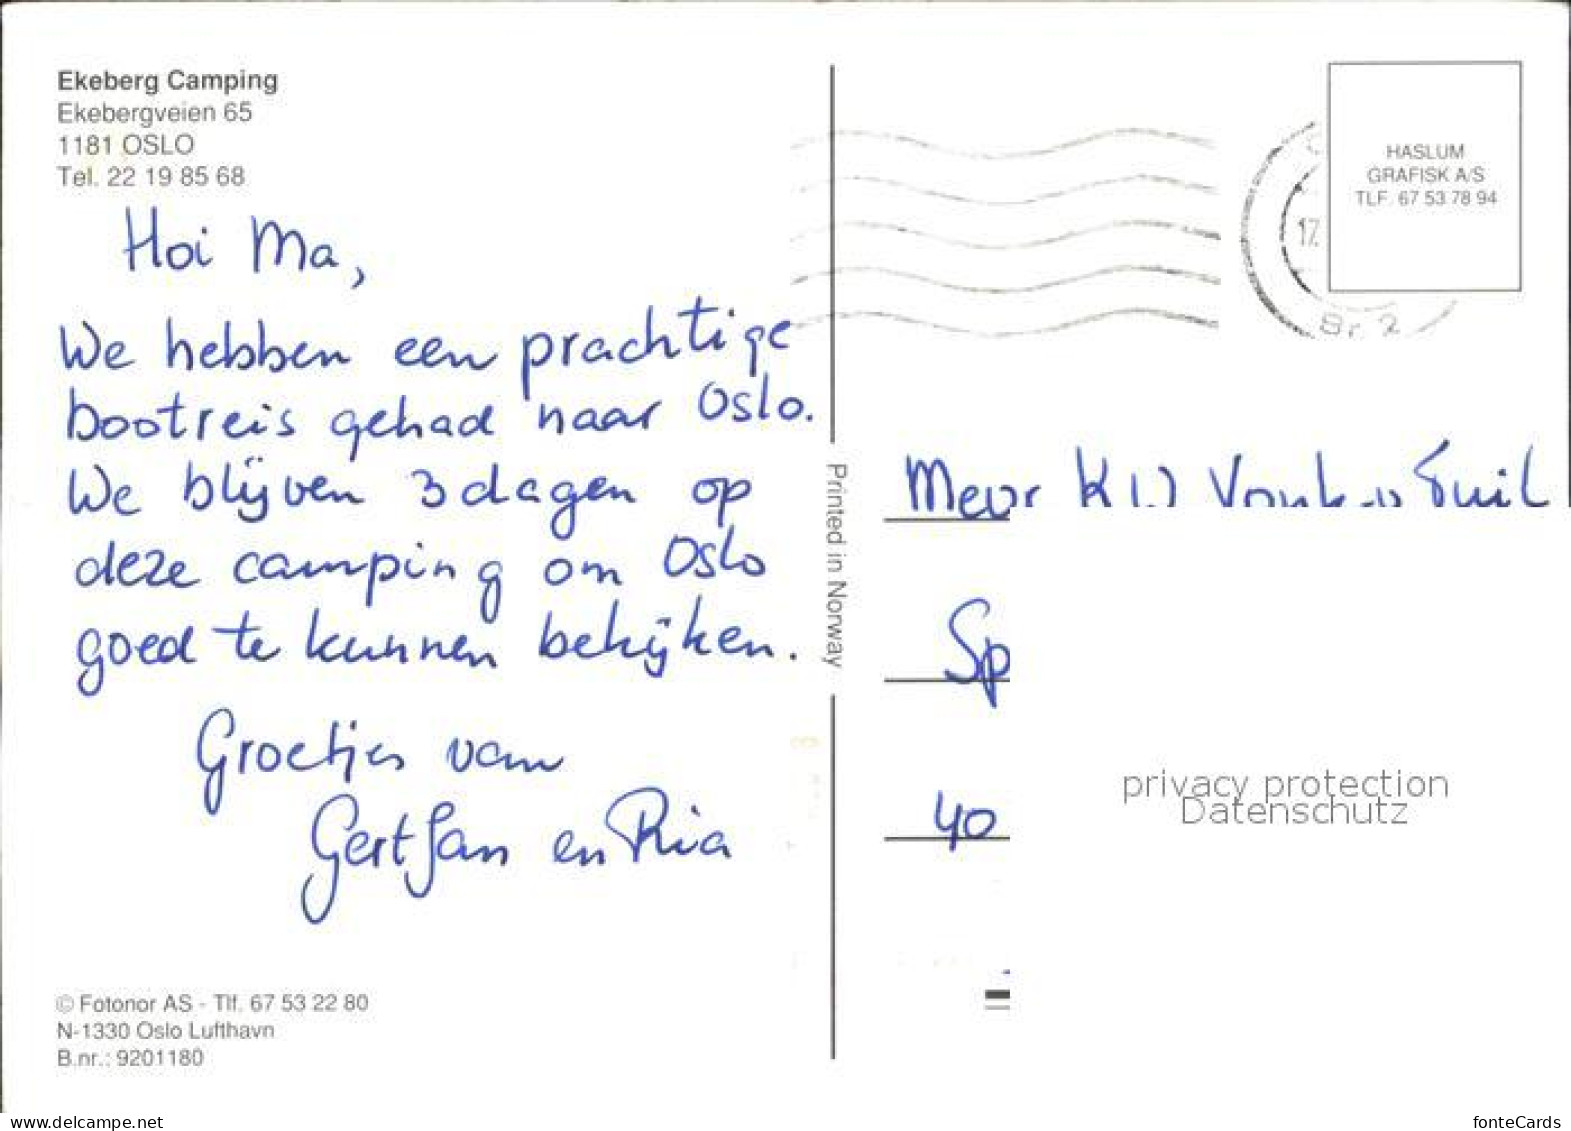 Ekeberg Camping
Ekebergveien 65
1181 OSLO
Tel. 22 19 85 68
Hoi Ma,
We hebben een prachtige
bootreis gehad naar Oslo.
We blijven 3 dagen op
deze camping om Oslo
goed te kunnen bekijken.
Groetjes van
Gert Jan en Ria
© Fotonor AS - Tlf. 67 53 22 80
N-1330 Oslo Lufthavn
B.nr.: 9201180
Printed in Norway
HASLUM
GRAFISK A/S
TLF. 67 53 78 94
17.
Br. 2
Mevr
Sp
40
privacy protection
Datenschutz
www.delcampe.net
fonteCards